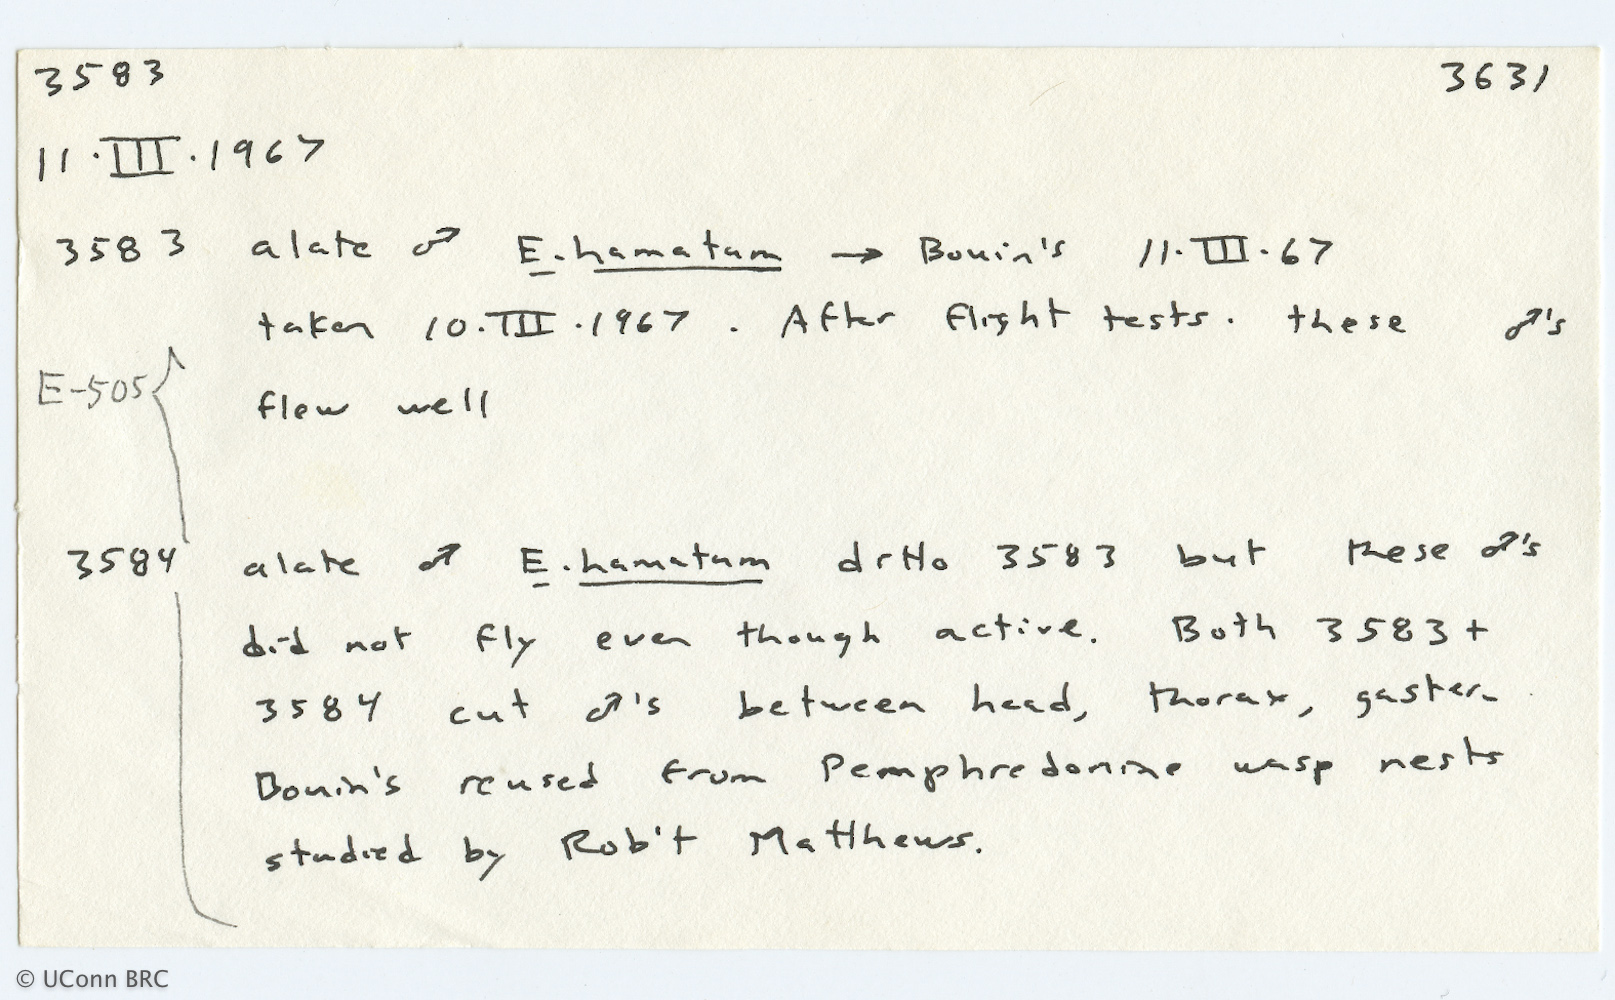 3583 3631
11.III.1967
3583 alate ♂ E. hamatum → Bouin's 11.III.67
taken 10.III.1967. After flight tests. these ♂'s
E-505 flew well
3584 alate ♂ E. hamatum ditto 3583 but these ♂'s
did not fly even though active. Both 3583 +
3584 cut ♂'s between head, thorax, gaster.
Bouin's reused from Pemphredonine wasp nests
studied by Rob't Matthews.
© UConn BRC